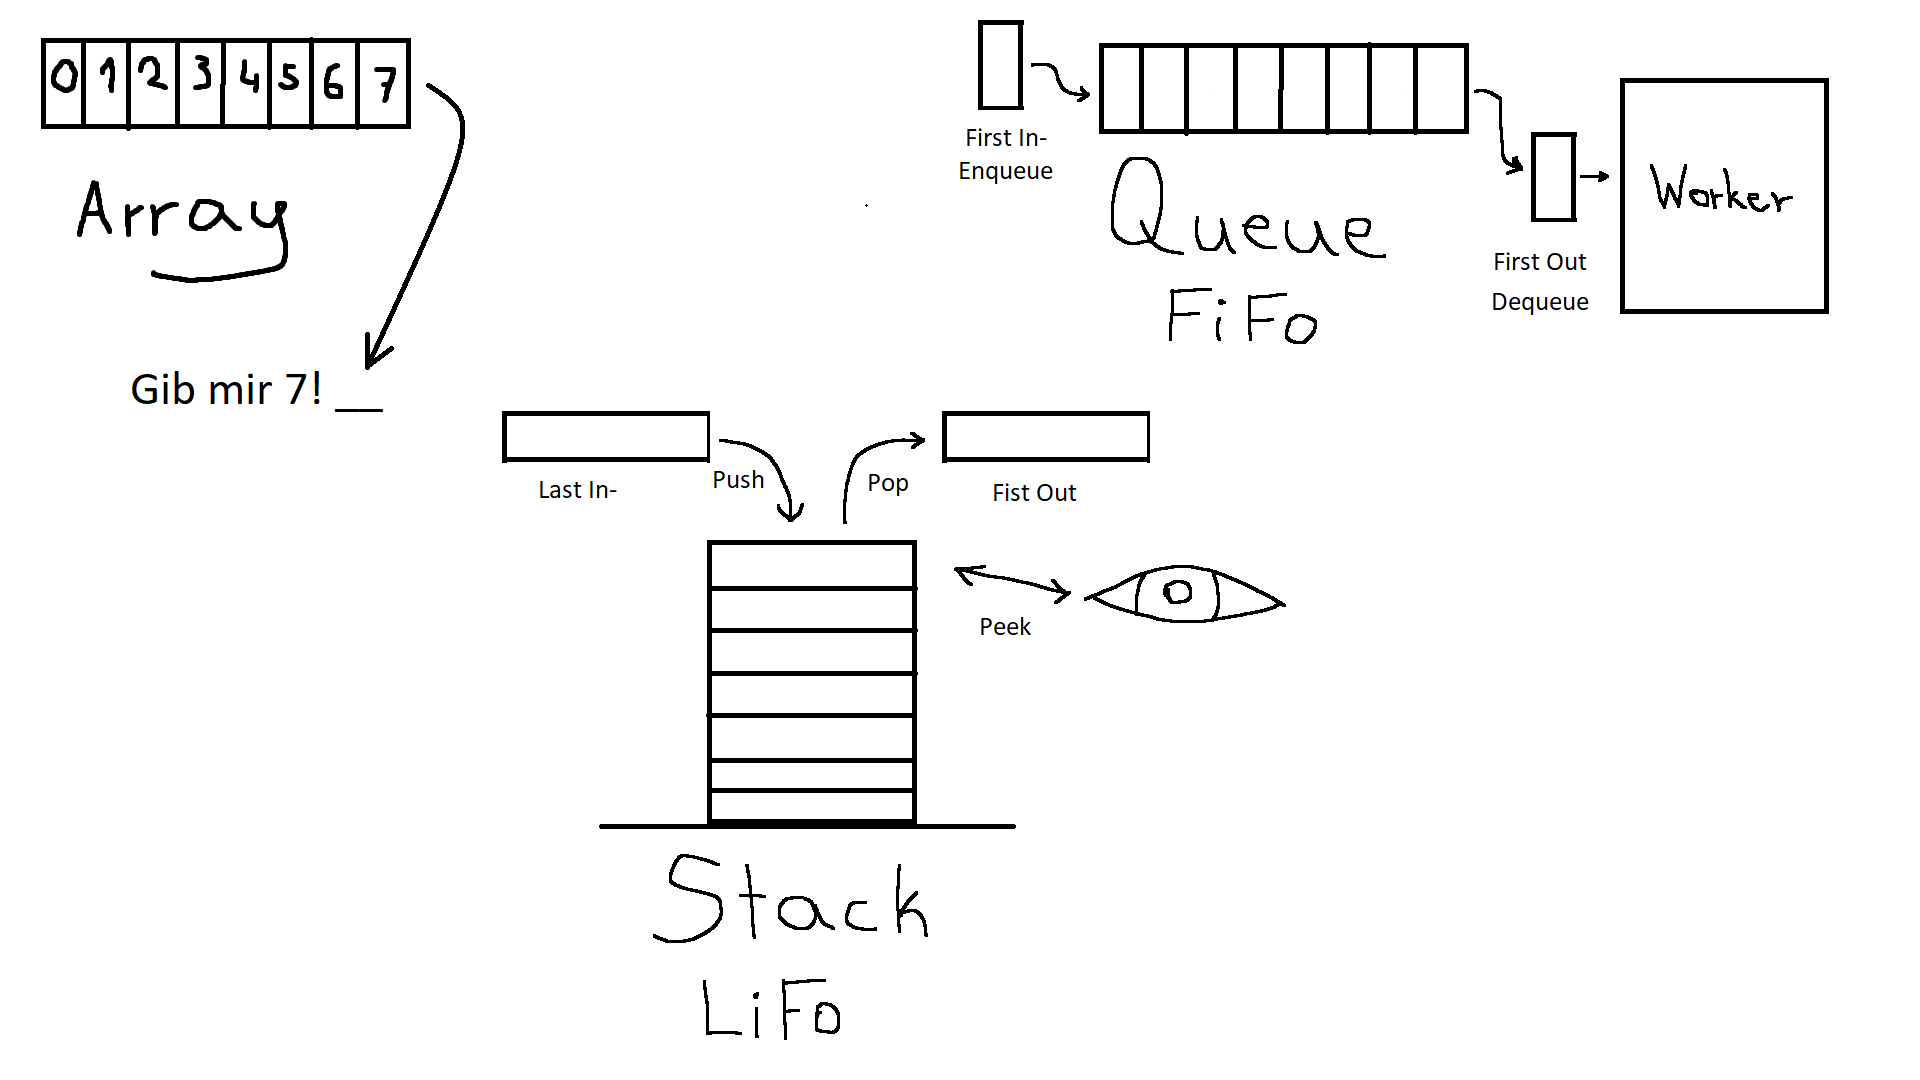 0 1 2 3 4 5 6 7
Array
Gib mir 7! __
First In-
Enqueue
Queue
FiFo
First Out
Dequeue
Worker
Last In-
Push
Pop
Fist Out
Peek
Stack
LiFo